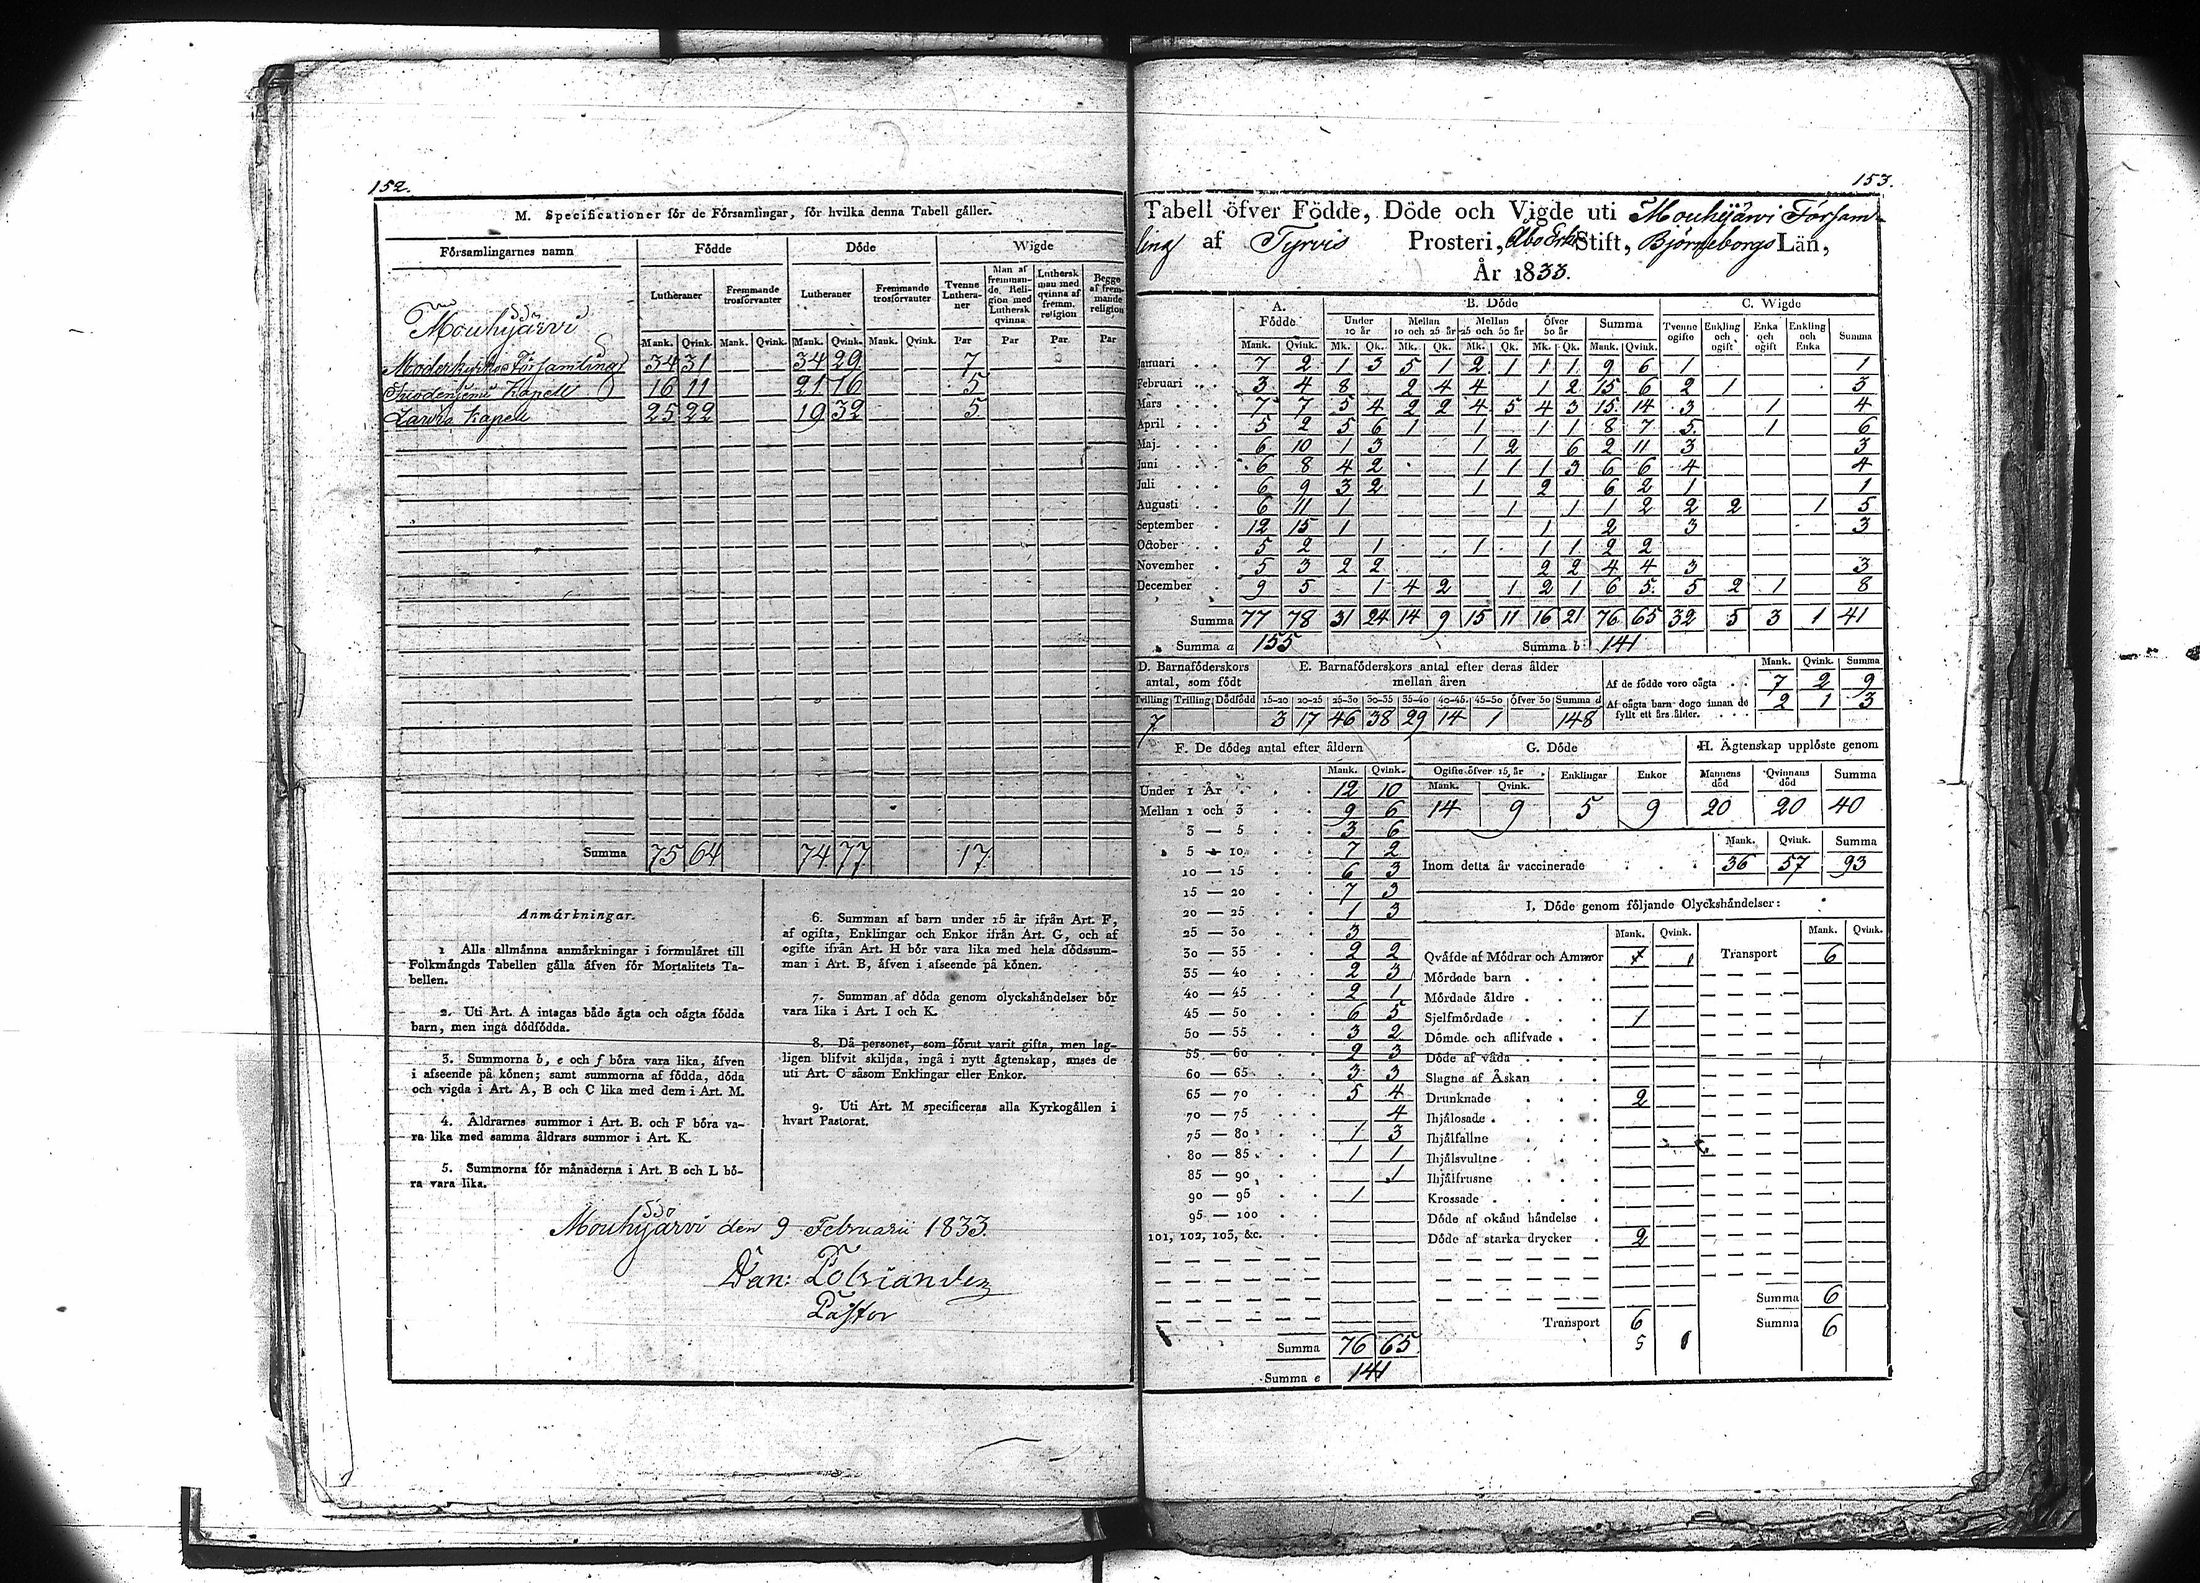 152.
M. Specificationer för de Församlingar, för hvilka denna Tabell gäller.
Församlingarnes namn Födde Döde Wigde
Lutheraner Fremmande trosförvanter Lutheraner Fremmande trosförvanter Tvenne Lutheraner Man af fremmande Religion med Luthersk qvinna Luthersk man med qvinna af fremm. religion Begge af fremmande religion
Mank. Qvink. Mank. Qvink. Mank. Qvink. Mank. Qvink. Par Par Par Par
Mouhijärvi
Moderkyrkos Församling 34 31 34 29 7
Kapell 16 11 21 16 5
Kapell 25 22 19 32 5
Summa 75 64 74 77 17
Anmärkningar.
1 Alla allmänna anmärkningar i formuläret till
Folkmängds Tabellen gälla äfven för Mortalitets Ta-
bellen.
2. Uti Art. A intagas både ägta och oägta födda
barn, men inga dödfödda.
3. Summorna b, e och f böra vara lika, äfven
i afseende på könen; samt summorna af födda, döda
och vigda i Art. A, B och C lika med dem i Art. M.
4. Åldrarnes summor i Art. B. och F böra va-
ra lika med samma åldrars summor i Art. K.
5. Summorna för månaderna i Art. B och L bö-
ra vara lika.
6. Summan af barn under 15 år ifrån Art. F,
af ogifta, Enklingar och Enkor ifrån Art. G, och af
ogifte ifrån Art. H bör vara lika med hela dödssum-
man i Art. B, äfven i afseende på könen.
7. Summan af döda genom olyckshändelser bör
vara lika i Art. I och K.
8. Då personer, som förut varit gifta, men lag-
ligen blifvit skiljda, ingå i nytt ägtenskap, anses de
uti Art. C såsom Enklingar eller Enkor.
9. Uti Art. M specificeras alla Kyrkogällen i
hvart Pastorat.
Mouhijärvi den 9 Februarii 1833.
Dan:
Pastor
153.
Tabell öfver Födde, Döde och Vigde uti Mouhijärvi Försam-
ling af Tyrvis Prosteri, Åbo Erke Stift, Björneborgs Län,
År 1833.
A. Födde B. Döde C. Wigde
Under 10 år Mellan 10 och 25 år Mellan 25 och 50 år Öfver 50 år Summa Tvenne ogifte Enkling och ogift Enka och ogift Enkling och Enka Summa
Mank. Qvink. Mk. Qk. Mk. Qk. Mk. Qk. Mk. Qk. Mank. Qvink.
Januari 7 2 1 3 5 1 2 1 1 1 9 6 1 1
Februari 3 4 8 2 4 4 1 2 15 6 2 1 3
Mars 7 7 5 4 2 2 4 5 4 3 15 14 3 1 4
April 5 2 5 6 1 1 1 1 8 7 5 1 6
Maj 6 10 1 3 1 2 6 2 11 3 3
Juni 6 8 4 2 1 1 1 3 6 6 4 4
Juli 6 9 3 2 1 2 6 2 1 1
Augusti 6 11 1 1 1 1 2 2 2 1 5
September 12 15 1 1 2 3 3
October 5 2 1 1 1 1 2 2
November 5 3 2 2 2 2 4 4 3 3
December 9 5 1 4 2 1 2 1 6 5 5 2 1 8
Summa 77 78 31 24 14 9 15 11 16 21 76 65 32 5 3 1 41
Summa a 155 Summa b 141
D. Barnaföderskors antal, som födt E. Barnaföderskors antal efter deras ålder mellan åren
Tvilling Trilling Dödfödd 15-20 20-25 25-30 30-35 35-40 40-45 45-50 Öfver 50 Summa d
7 3 17 46 38 29 14 1 148
Mank. Qvink. Summa
Af de födde voro oägta 7 2 9
Af oägta barn dogo innan de fyllt ett års ålder. 2 1 3
F. De dödes antal efter åldern
Mank. Qvink.
Under 1 År 12 10
Mellan 1 och 3 9 6
3 — 5 3 6
5 — 10 7 2
10 — 15 6 3
15 — 20 7 3
20 — 25 1 3
25 — 30 3
30 — 35 2 2
35 — 40 2 3
40 — 45 2 1
45 — 50 6 5
50 — 55 3 2
55 — 60 2 3
60 — 65 3 3
65 — 70 5 4
70 — 75 4
75 — 80 1 3
80 — 85 1 1
85 — 90 1
90 — 95 1
95 — 100
101, 102, 103, &c.
Summa 76 65
Summa e 141
G. Döde H. Ägtenskap upplöste genom
Ogifte öfver 15 år Enklingar Enkor Mannens död Qvinnans död Summa
Mank. Qvink.
14 9 5 9 20 20 40
Mank. Qvink. Summa
Inom detta år vaccinerade 36 57 93
I. Döde genom följande Olyckshändelser:
Mank. Qvink. Mank. Qvink.
Qväfde af Mödrar och Ammor 1 Transport 6
Mördade barn
Mördade äldre
Sjelfmördade 1
Dömde och aflifvade
Döde af våda
Slagne af Åskan
Drunknade 2
Ihjälosade
Ihjälfallne
Ihjälsvultne
Ihjälfrusne
Krossade
Döde af okänd händelse
Döde af starka drycker 2
Summa 6
Transport 6 Summa 6
5 1